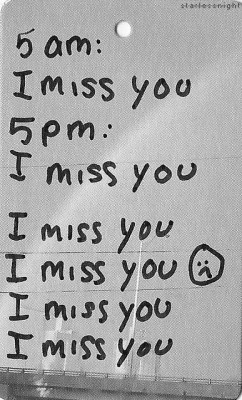 starlessnight
5 am:
I miss you
5 pm:
I miss you
I miss you
I miss you
I miss you
I miss you